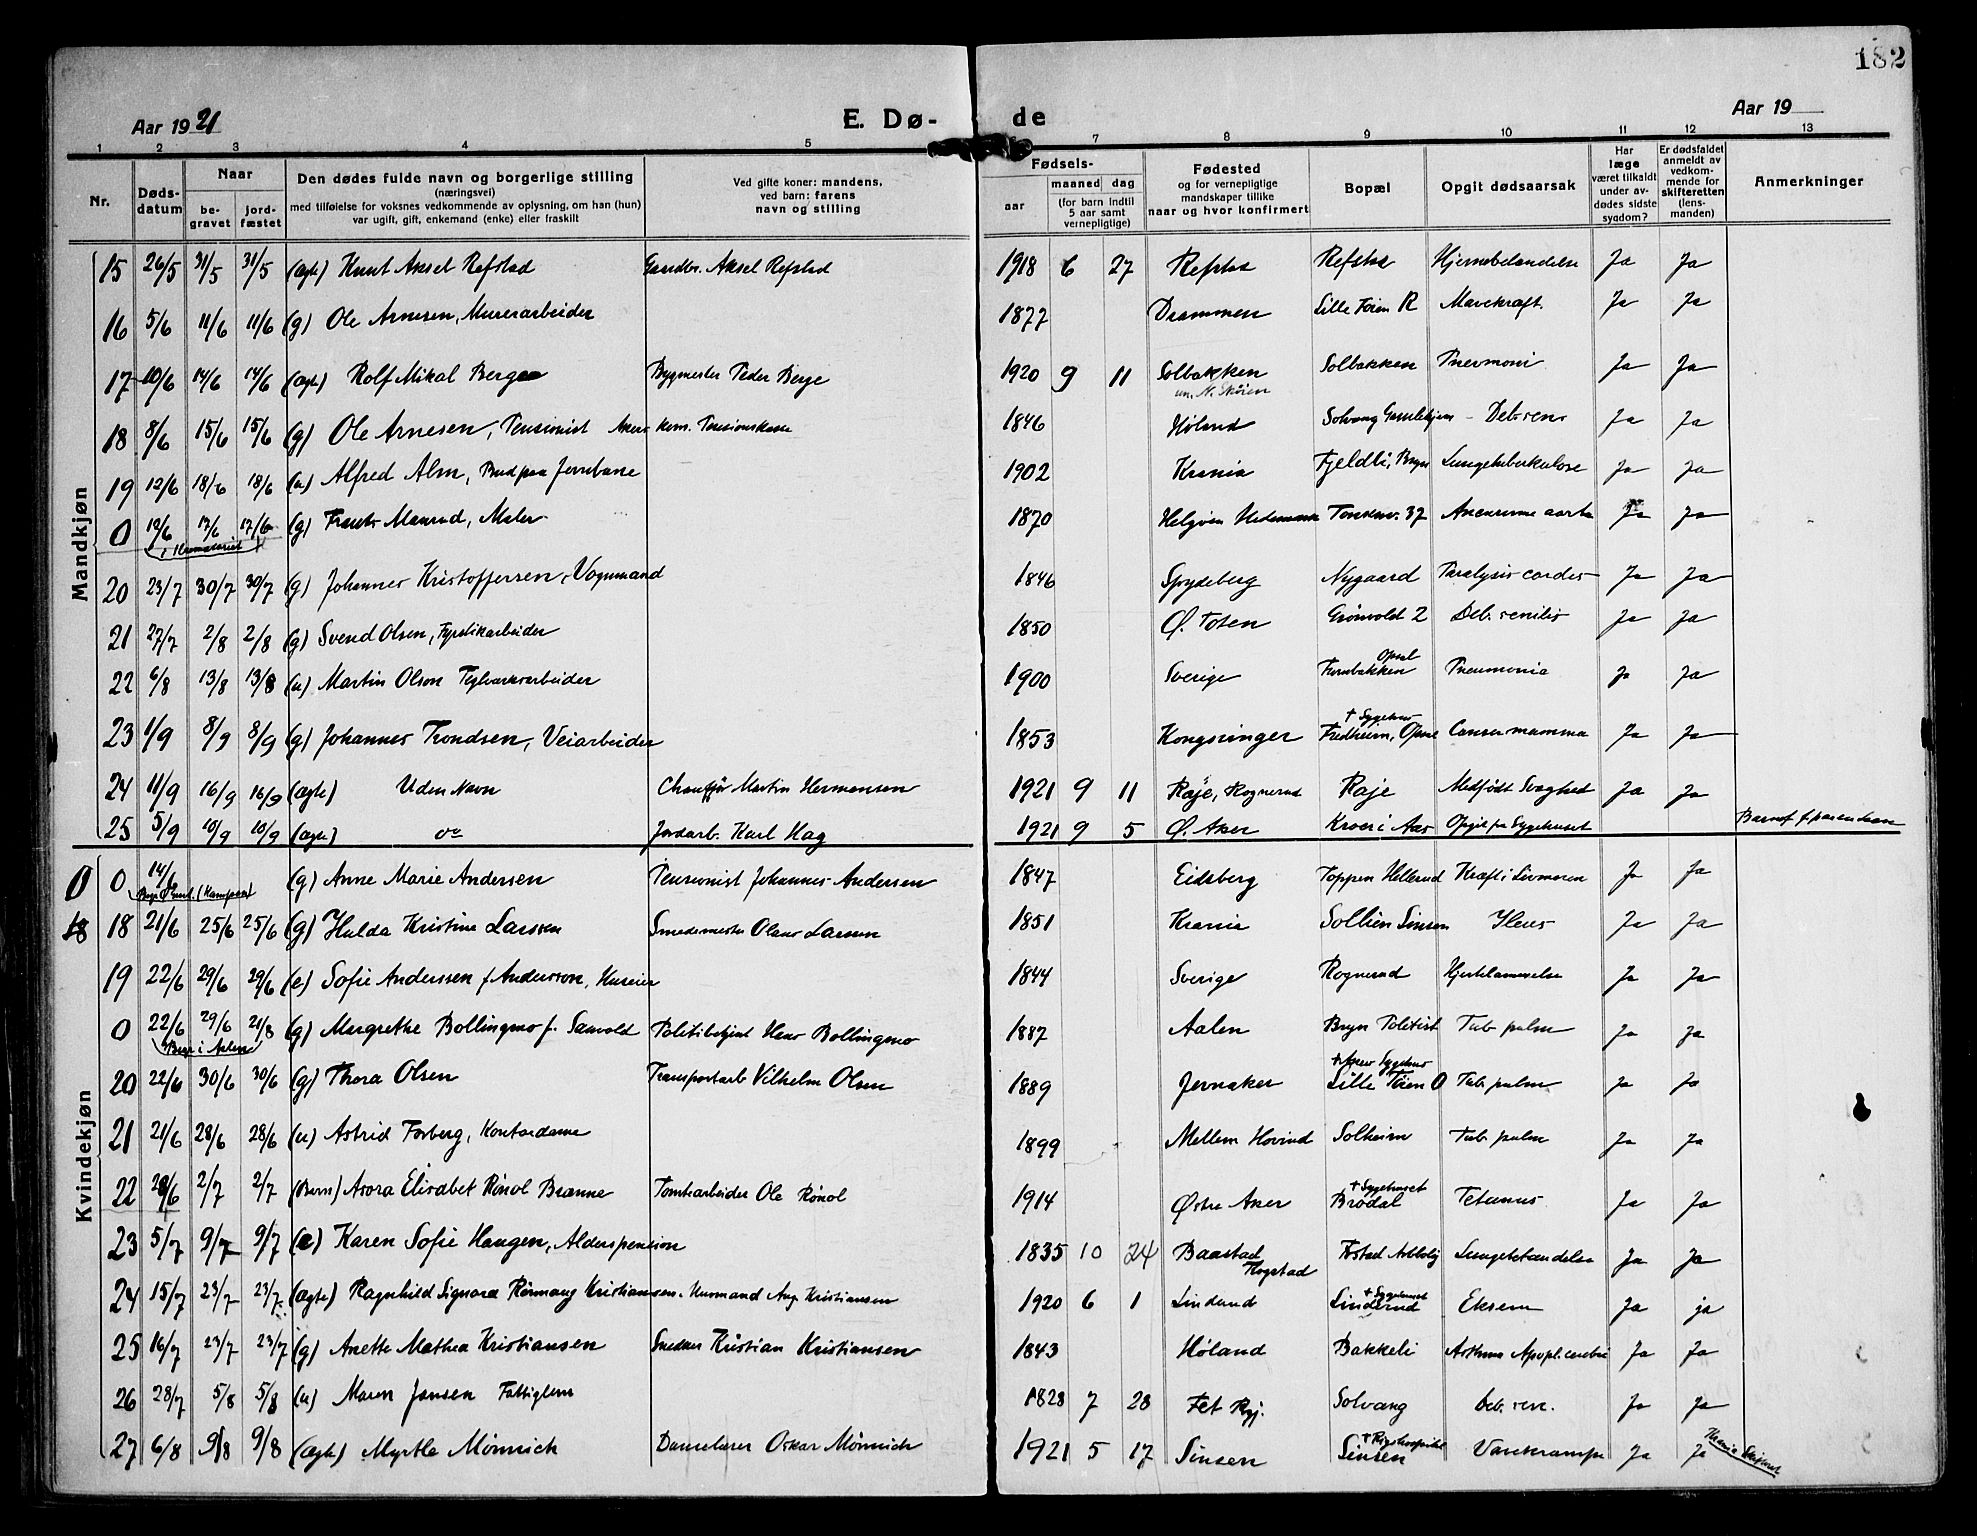 182
Aar 1921 E. Dø- de Aar 19
1 2 3 4 5 7 8 9 10 11 12 13
Nr. Døds-datum Naar be-gravet jord-fæstet Den dødes fulde navn og borgerlige stilling (næringsvei) med tilføielse for voksnes vedkommende av oplysning, om han (hun) var ugift, gift, enkemand (enke) eller fraskilt Ved gifte koner: mandens, ved barn: farens navn og stilling Fødsels- aar maaned dag (for barn indtil 5 aar samt vernepligtige) Fødested og for vernepligtige mandskaper tillike naar og hvor konfirmert Bopæl Opgit dødsaarsak Har læge været tilkaldt under av-dødes sidste sygdom? Er dødsfaldet anmeldt av vedkom-mende for skifteretten (lens-manden) Anmerkninger
Mandkjøn
15 26/5 31/5 31/5 (ægte) Knut Aksel Refstad Gaardbr. Aksel Refstad 1918 6 27 Refstad Refstad Ja Ja
16 5/6 11/6 11/6 (g) Ole Arnesen, Murerarbeider 1877 Drammen Lille Tøien R Mavekræft. Ja Ja
17 10/6 14/6 14/6 (ægte) Rolf Mikal Berge Bygmester Peder Berge 1920 9 11 Solbakken un. N. Skøien Solbakken Pnevmoni Ja Ja
18 8/6 15/6 15/6 (g) Ole Arnesen, Pensionist Akers kom. Pensionskasse 1846 Høland Solvang Gamlehjem Deb. sen. Ja Ja
19 12/6 18/6 18/6 (u) Alfred Alm, Bud paa Jernbane 1902 Krania Fjeldli, Bryn Lungetuberkulose Ja Ja
0 12/6 17/6 17/6 (g) Frants Manrud, Maler 1870 Helgøen Hedemark Tonsenv. 37 Aneurisme aorta Ja Ja
i Krematoriet
20 23/7 30/7 30/7 (g) Johannes Kristoffersen, Vognmand 1846 Spydeberg Nygaard Paralysis cordis Ja Ja
21 27/7 2/8 2/8 (g) Svend Olsen, Fyrstikarbeider 1850 Ø. Toten Grønvold 2 Deb. senilis Ja Ja
22 6/8 13/8 13/8 (u) Martin Olson Teglverksarbeider 1900 Sverige Opsal Pneumonia Ja Ja
23 1/9 8/9 8/9 (g) Johannes Trondsen, Veiarbeider 1853 Kongsvinger + Sygehus Fredheim, Opsal Cancer mamma Ja Ja
24 11/9 16/9 16/9 (ægte) Uden Navn Chauffør Martin Hermansen 1921 9 11 Raje, Rognerud Raje Medfødt Svaghed Ja Ja
25 5/9 10/9 10/9 (ægte) Jordarb. Karl Hag 1921 9 5 Ø. Aker Kroer i Aas Opgit fra Sygehuset
Kvindekjøn
0 0 14/6 (g) Anne Marie Andersen Pensionist Johannes Andersen 1847 Eidsberg Toppen Hellerud Kræft i Livmoren Ja Ja
18 18 21/6 25/6 25/6 (g) Hulda Kristine Larsen Smedemester Olaus Larsen 1851 Krania Sollien Sinsen Ileus Ja Ja
19 22/6 29/6 29/6 (e) Sofie Anderssen f. Andersson, Huseier 1844 Sverige Rognerud Hjertelammelse Ja Ja
0 22/6 29/6 21/8 (g) Margrethe Bollingmo f. Politibetjent Hans Bollingmo 1887 Aalen Bryn Politist Tub. pulm Ja Ja
Begr. i Aalen
20 22/6 30/6 30/6 (g) Thora Olsen Transportarb Vilhelm Olsen 1889 Jevnaker + Aker Sygehus Lille Tøien O Tub. pulm Ja Ja
21 21/6 28/6 28/6 (u) Astrid Forberg, Kontordame 1899 Mellem Hovind Solheim Tub. pulm Ja Ja
22 28/6 2/7 2/7 (Barn) Asora Elisabet Rønol Brænne Tomtarbeider Ole Rønol 1914 Østre Aker + Sygehuset Brødal Tetanus Ja Ja
23 5/7 9/7 9/7 (e) Karen Sofie Haugen, Alderspension 1835 10 24 Baastad Trøgstad Lungebetændelse Ja Ja
24 15/7 23/7 23/7 (ægte) Ragnhild Signora Rørmang Kristiansen. Murmand Aug. Kristiansen 1920 6 1 Linderud + Sygehuset Linderud Eksem Ja ja
25 16/7 23/7 23/7 (g) Anette Mathea Kristiansen Snedker Kristian Kristiansen 1843 Høland Bakkeli Asthma Apopl. cerebri Ja Ja
26 28/7 5/8 5/8 (u) Maren Jensen Fattiglem 1828 7 28 Fet Solvang Deb. sen. Ja Ja
27 6/8 9/8 9/8 (ægte) Myrtle Mønnich Danselærer Oskar Mønnich 1921 5 17 Sinsen + Rigshospitalet Sinsen Ja Ja